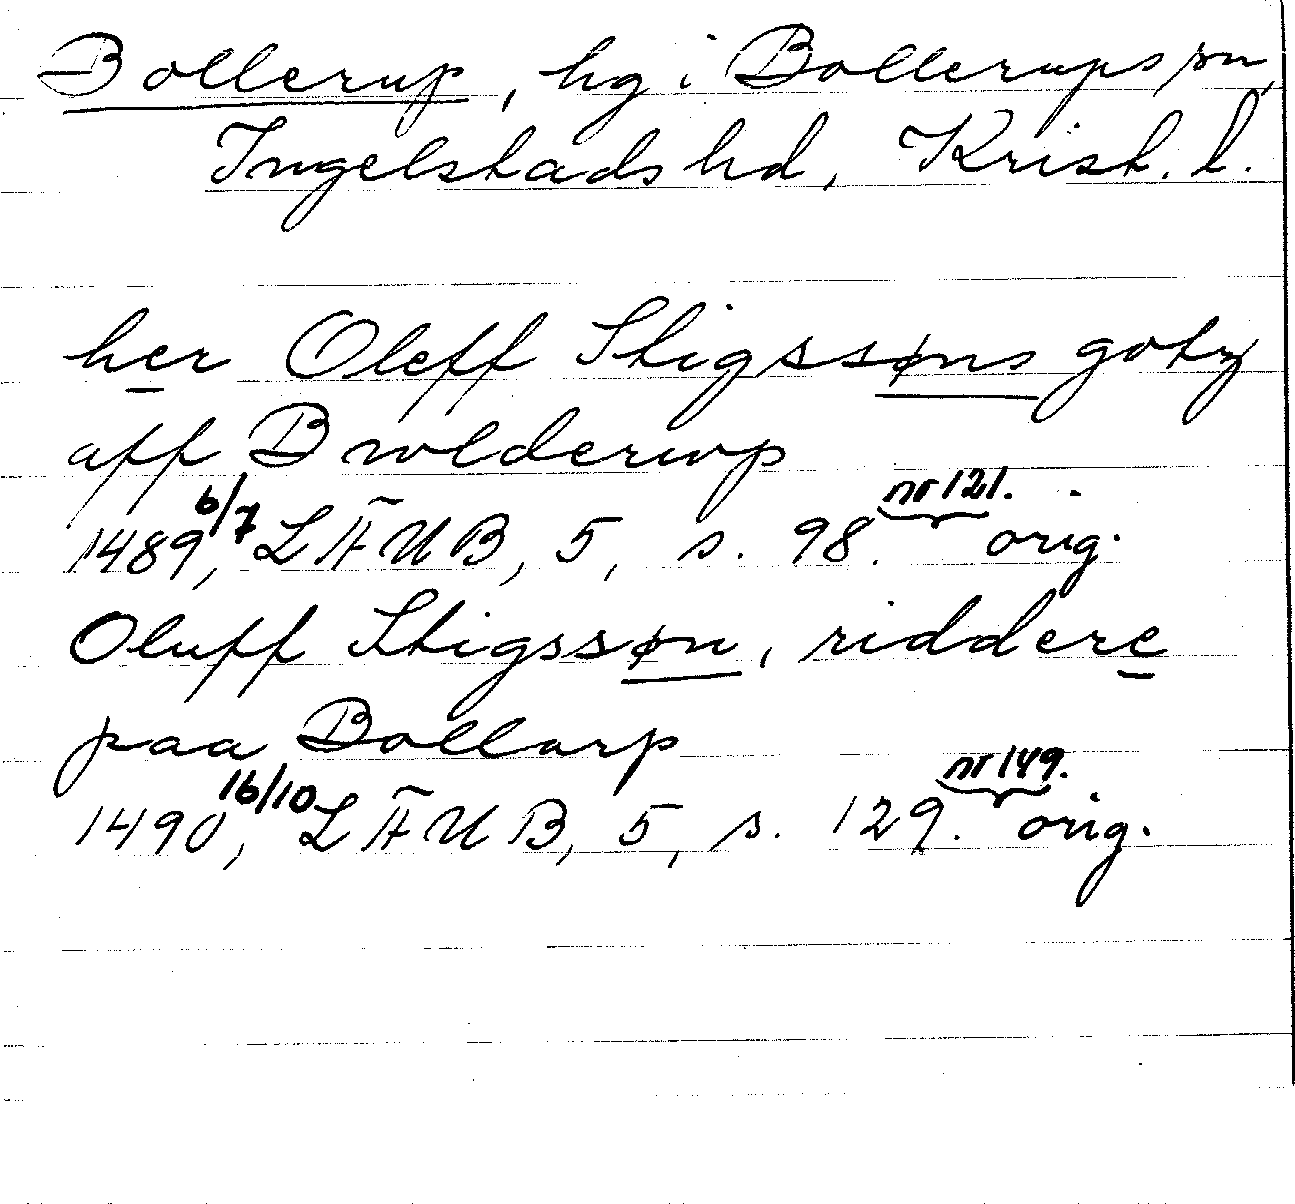 Bollerup, hg i Bollerups sn,
Ingelstads hd, Krist. l.
her Oleff Stigssøns gotz
aff Bwlderwp
1489 6/7, LÄUB, 5, s. 98. nr 121. orig.
Oluff Stigssøn, riddere
paa Bollarp
1490, 16/10 LÄUB, 5, s. 129. nr 149. orig.